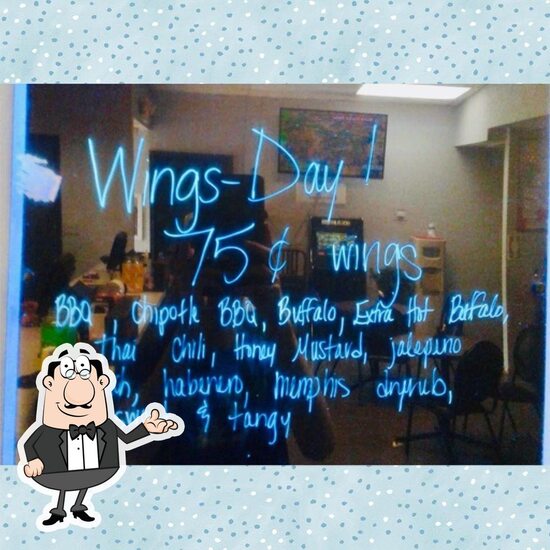 Wings-Day!
75¢ wings
BBQ, Chipotle BBQ, Buffalo, Extra Hot Buffalo,
Thai Chili, Honey Mustard, jalepeno
habenero, memphis dryrub,
& tangy